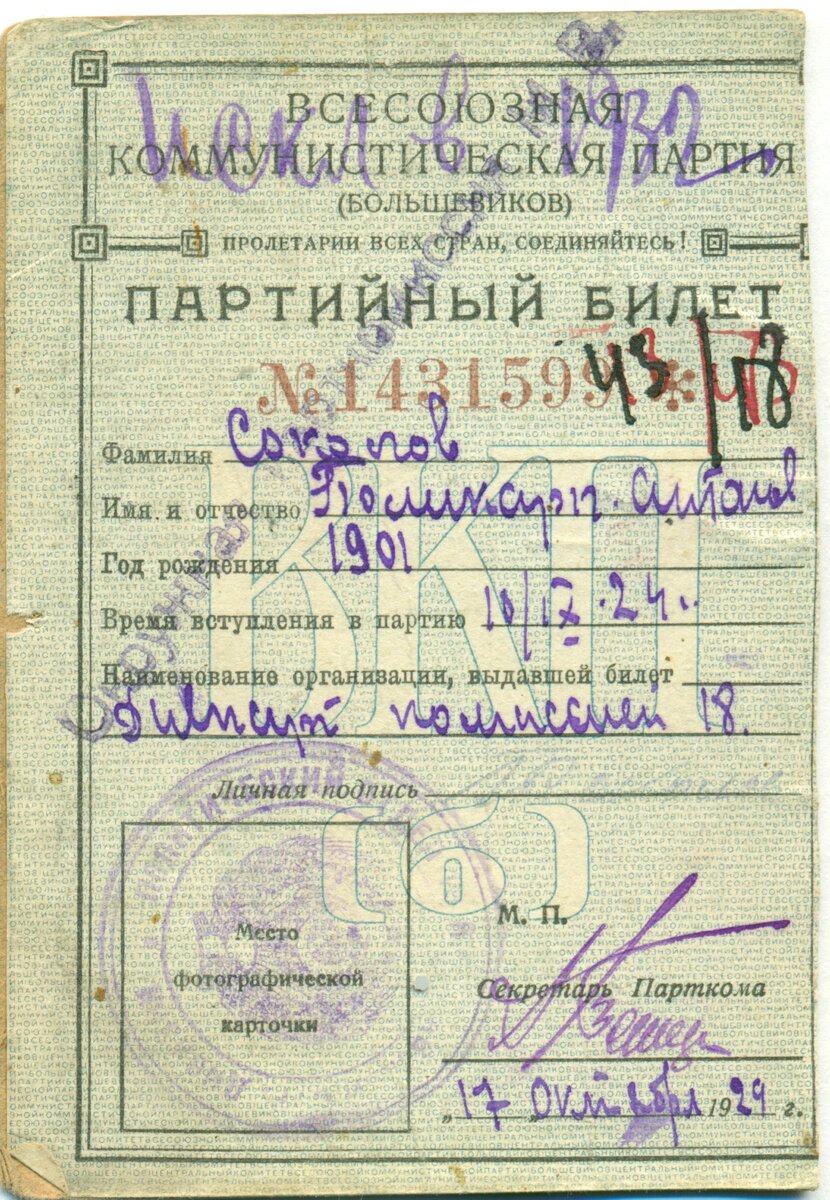 Искл в 1932
ВСЕСОЮЗНАЯ
КОММУНИСТИЧЕСКАЯ ПАРТИЯ
(БОЛЬШЕВИКОВ)
ПРОЛЕТАРИИ ВСЕХ СТРАН, СОЕДИНЯЙТЕСЬ!
ПАРТИЙНЫЙ БИЛЕТ
№ 1431599 *
43/
Фамилия Соколов
Имя и отчество Поликарп. Антонов
Год рождения 1901
Время вступления в партию 10/IX-24.
Наименование организации, выдавшей билет
комиссией 18.
Личная подпись
ВКП
(б)
Место
фотографической
карточки
М. П.
Секретарь Парткома
„17 „ октября 1929 г.